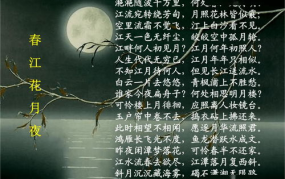 春江花月夜
滟滟随波千万里，何处
江流宛转绕芳甸，月照花林皆似霰。
空里流霜不觉飞，汀上白沙看不见。
江天一色无纤尘，皎皎空中孤月轮。
江畔何人初见月？江月何年初照人？
人生代代无穷已，江月年年只相似。
不知江月待何人，但见长江送流水。
白云一片去悠悠，青枫浦上不胜愁。
谁家今夜扁舟子？何处相思明月楼？
可怜楼上月徘徊，应照离人妆镜台。
玉户帘中卷不去，捣衣砧上拂还来。
此时相望不相闻，愿逐月华流照君。
鸿雁长飞光不度，鱼龙潜跃水成文。
昨夜闲潭梦落花，可怜春半不还家。
江水流春去欲尽，江潭落月复西斜。
斜月沉沉藏海雾，碣石潇湘无限路。